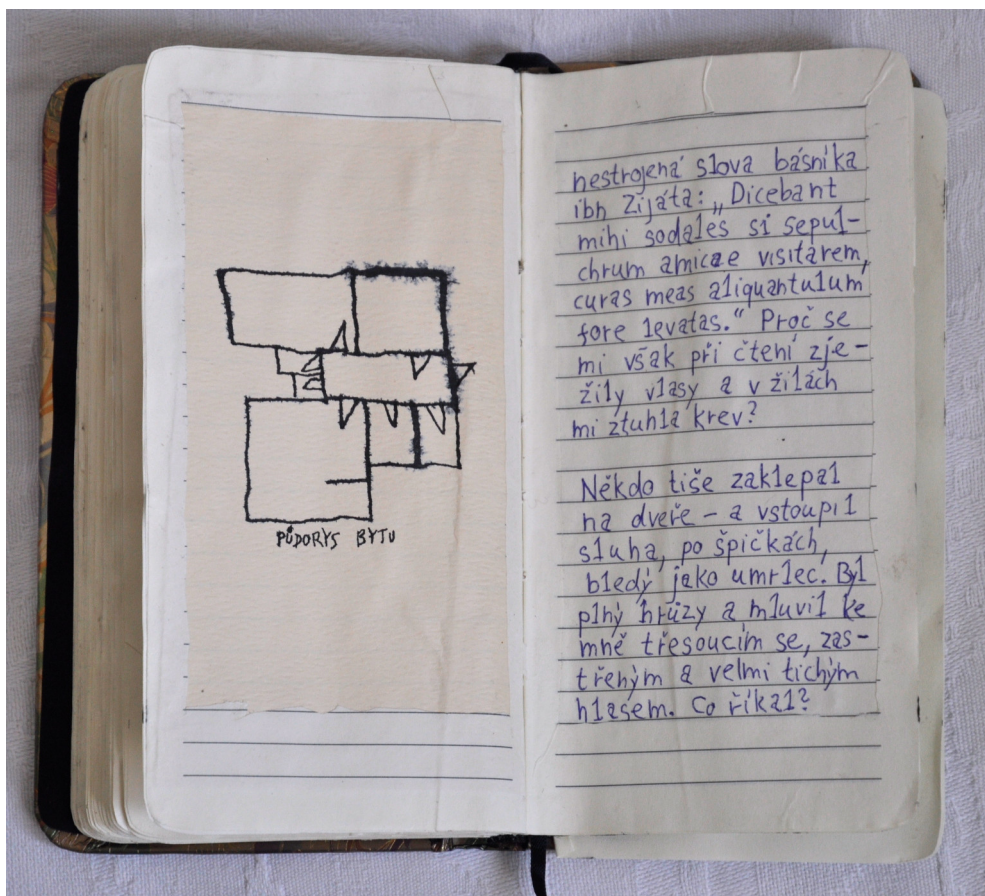 PŮDORYS BYTU
nestrojená slova básníka
ibn Zijáta: „Dicebant
mihi sodales si sepul-
chrum amicae visitarem,
curas meas aliquantulum
fore levatas.“ Proč se
mi však při čtení zje-
žily vlasy a v žilách
mi ztuhla krev?
Někdo tiše zaklepal
na dveře – a vstoupil
sluha, po špičkách,
bledý jako umrlec. Byl
plný hrůzy a mluvil ke
mně třesoucím se, zas-
třeným a velmi tichým
hlasem. Co říkal?